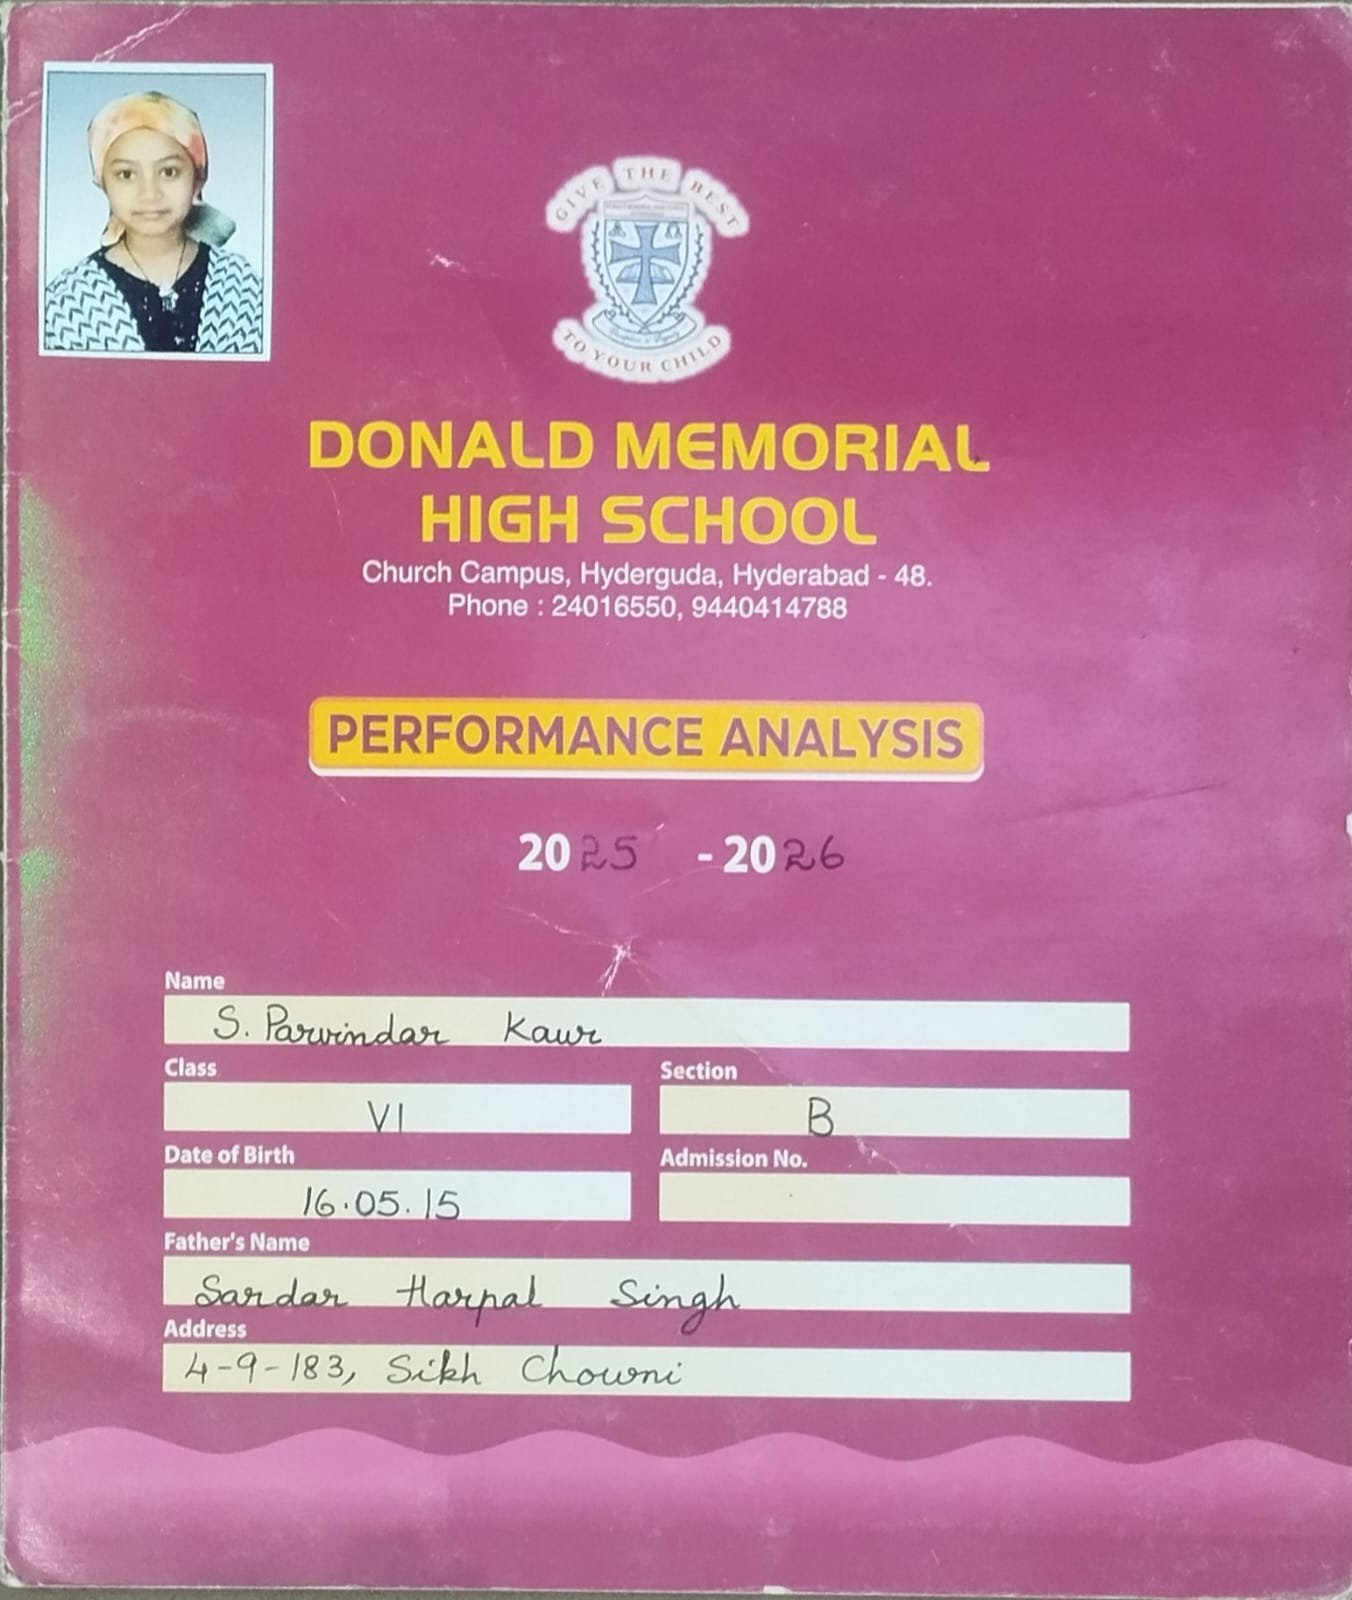 GIVE THE BEST
TO YOUR CHILD
DONALD MEMORIAL
HIGH SCHOOL
Church Campus, Hyderguda, Hyderabad - 48.
Phone : 24016550, 9440414788
PERFORMANCE ANALYSIS
2025 - 2026
Name
S. Parvindar Kaur
Class Section
VI B
Date of Birth Admission No.
16.05.15
Father's Name
Sardar Harpal Singh
Address
4-9-183, Sikh Chowni